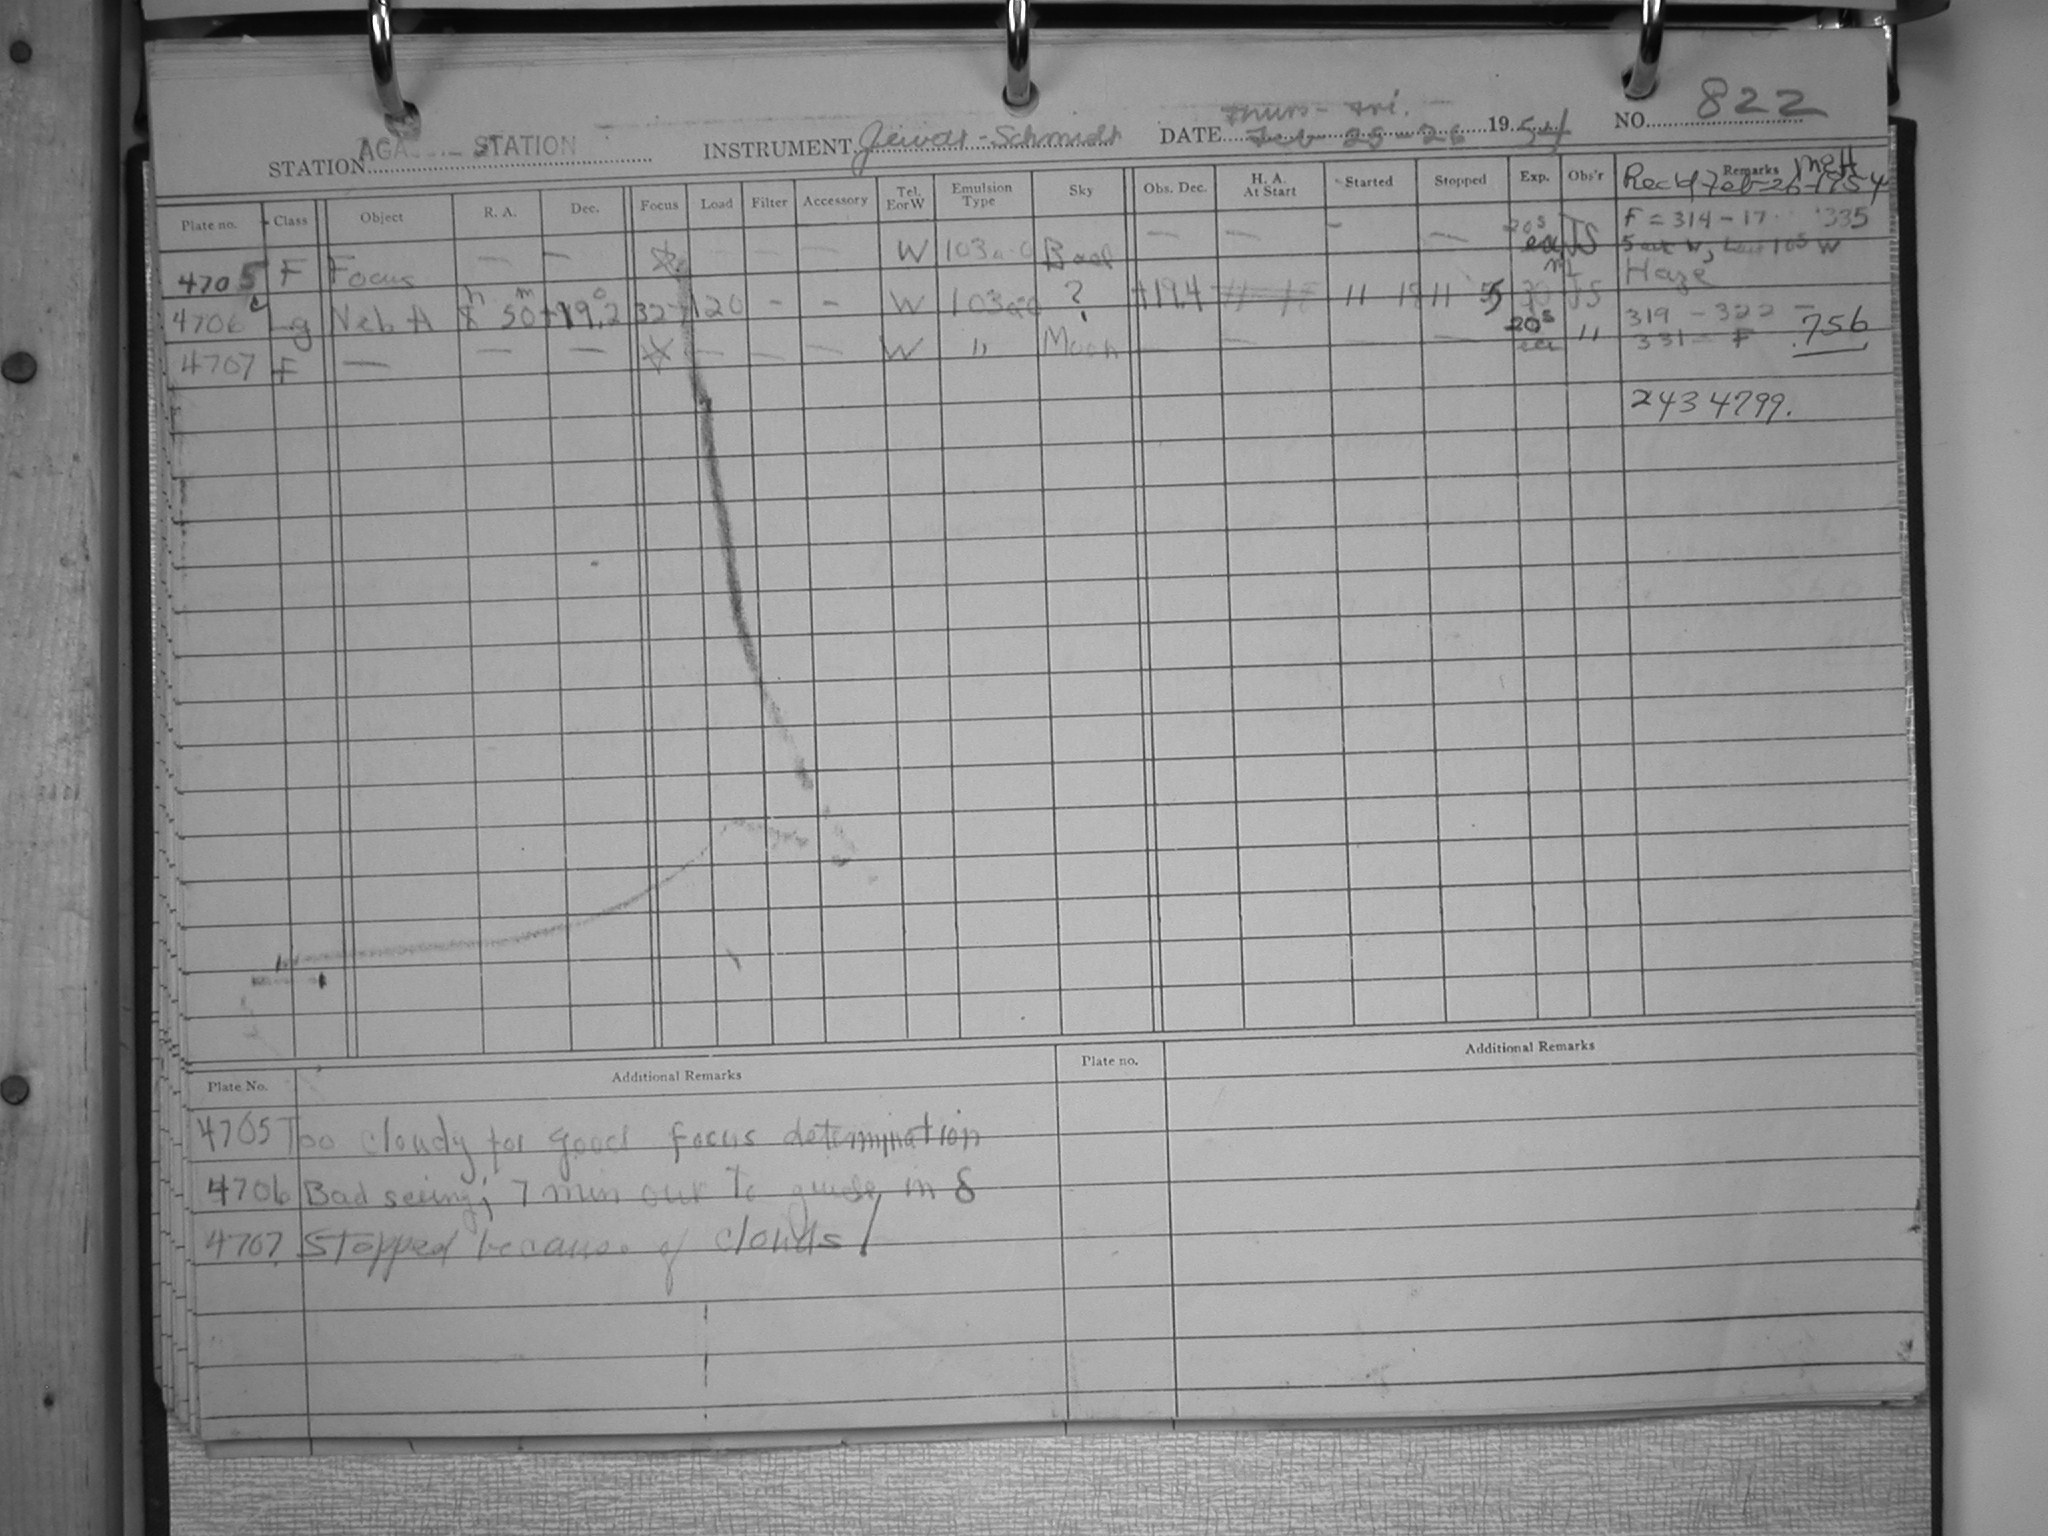 Thurs - Fri.
STATION AGA STATION INSTRUMENT Jewett-Schmidt DATE Feb 25-26 1954 NO. 822
Plate no. Class Object R. A. Dec. Focus Load Filter Accessory Tel. EorW Emulsion Type Sky Obs. Dec. H. A. At Start Started Stopped Exp. Obs'r Remarks
Rec'd Feb-26-1954
4705 F Focus — — — — — W 103a-O Bad — — — — 20s ea JS F = 314 - 17 335
4706 Neb A 8h 50m +19.2 327 120 - - W 103a-O ? +19.4 11 18 11 55 JS Haze
4707 F — — — — — — W " Moon — — — — 20s ea " 319 - 322
331 - F .756
2434799.
Plate No. Additional Remarks Plate no. Additional Remarks
4705 Too cloudy for good focus determination
4706 Bad seeing; 7 min out to guide in δ
4707 Stopped because of clouds!